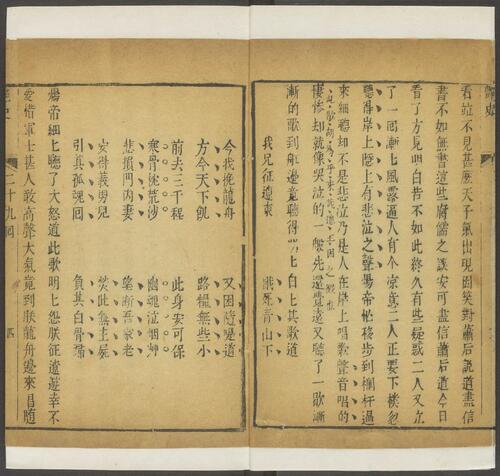 看並不見甚麼天子氣出現因笑對蕭后說道盡信
書不如無書這些腐儒之談安可盡信蕭后道今日
看了方見明白若不如此終久有些疑惑二人又立
了一回漸上風露逼人有个涼意二人正要下樓忽
聽得岸上隄上有悲泣之聲煬帝忙移步到欄杆邊
來細聽却不是悲泣乃是人在岸上唱歌聲音唱的
悽慘却就像哭泣的一般先還遠遠又聽了一歇漸
漸的歌到船邊竟聽得明上白上其歌道
我兄征遼東
餓死青山下
今我挽龍舟
又困隋堤道
方今天下飢
路糧無些小
前去三千程
此身安可保
寒骨枕荒沙
幽魂泣煙草
悲損門內妻
望斷吾家老
安得義男兒
焚此無主屍
引其孤魂回
負其白骨歸
煬帝細上聽了大怒道此歌明上怨朕征遼遊幸不
愛惜軍士甚人敢高聲大氣竟到朕龍舟邊來唱隨
艷史
二十九回
四